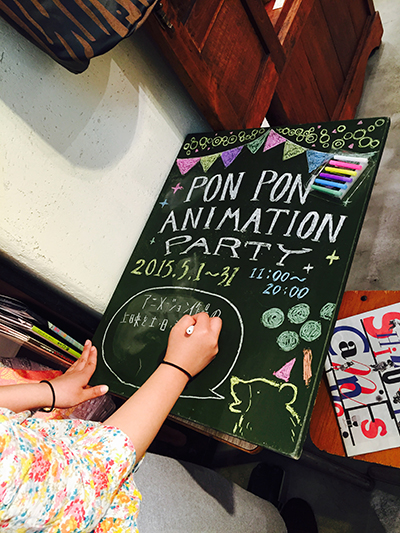 PON PON
ANIMATION
PARTY
2015.5.1~31
11:00~
20:00
アニメーション作品の
上映と